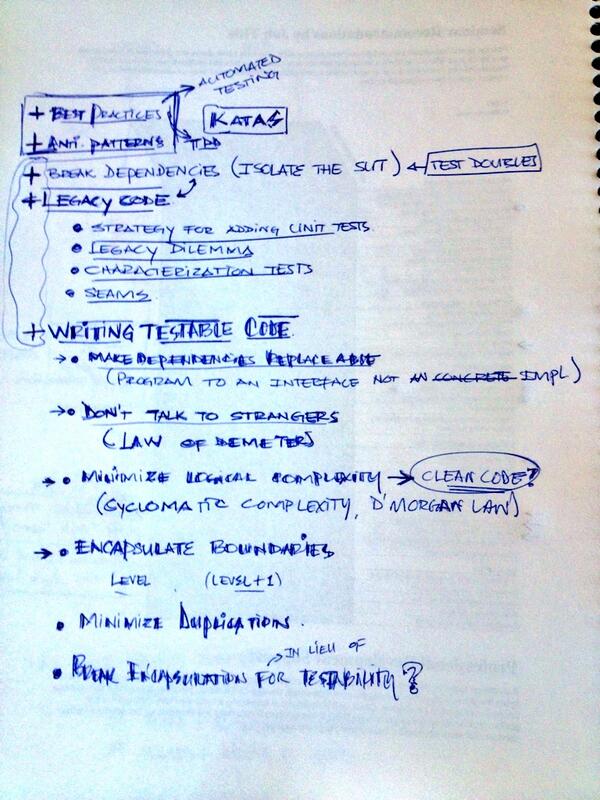 AUTOMATED
TESTING
+ BEST PRACTICES
KATAS
+ ANTI-PATTERNS
TDD
+ BREAK DEPENDENCIES (ISOLATE THE SUT) ← TEST DOUBLES
+ LEGACY CODE
• STRATEGY FOR ADDING UNIT TESTS
• LEGACY DILEMMA
• CHARACTERIZATION TESTS
• SEAMS
+ WRITING TESTABLE CODE
→ • MAKE DEPENDENCIES REPLACEABLE
(PROGRAM TO AN INTERFACE NOT AN CONCRETE IMPL)
→ • DON'T TALK TO STRANGERS
(LAW OF DEMETER)
→ • MINIMIZE LOGICAL COMPLEXITY → CLEAN CODE?
(SYCLOMATIC COMPLEXITY, D'MORGAN LAW)
→ • ENCAPSULATE BOUNDARIES
LEVEL (LEVEL+1)
• MINIMIZE DUPLICATION.
IN LIEU OF
• BREAK ENCAPSULATION FOR TESTABILITY?